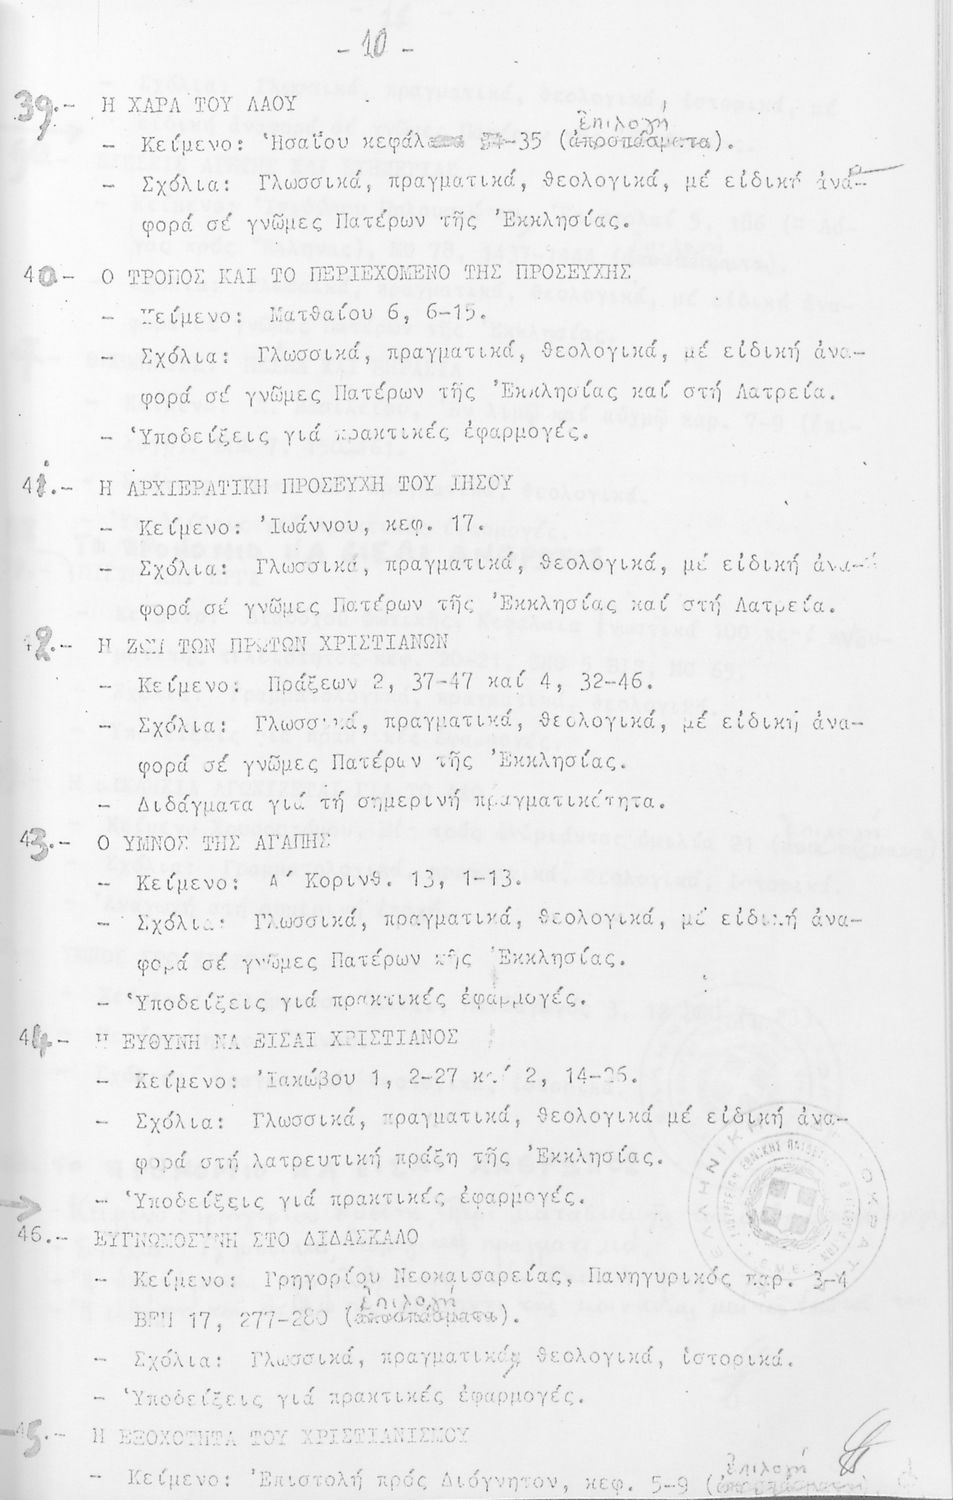 - 10 -
39.- Η ΧΑΡΑ ΤΟΥ ΛΑΟΥ
ἐπιλογή
- Κείμενο: Ἡσαΐου κεφάλ -35 (ἀποσπάσματα).
- Σχόλια: Γλωσσικά, πραγματικά, θεολογικά, μέ εἰδική ἀνα-
φορά σέ γνῶμες Πατέρων τῆς Ἐκκλησίας.
40.- Ο ΤΡΟΠΟΣ ΚΑΙ ΤΟ ΠΕΡΙΕΧΟΜΕΝΟ ΤΗΣ ΠΡΟΣΕΥΧΗΣ
- Κείμενο: Ματθαίου 6, 6-15.
- Σχόλια: Γλωσσικά, πραγματικά, θεολογικά, μέ εἰδική ἀνα-
φορά σέ γνῶμες Πατέρων τῆς Ἐκκλησίας καί στή Λατρεία.
- Ὑποδείξεις γιά πρακτικές ἐφαρμογές.
41.- Η ΑΡΧΙΕΡΑΤΙΚΗ ΠΡΟΣΕΥΧΗ ΤΟΥ ΙΗΣΟΥ
- Κείμενο: Ἰωάννου, κεφ. 17.
- Σχόλια: Γλωσσικά, πραγματικά, θεολογικά, μέ εἰδική ἀνα-
φορά σέ γνῶμες Πατέρων τῆς Ἐκκλησίας καί στή Λατρεία.
42.- Η ΖΩΗ ΤΩΝ ΠΡΩΤΩΝ ΧΡΙΣΤΙΑΝΩΝ
- Κείμενο: Πράξεων 2, 37-47 καί 4, 32-46.
- Σχόλια: Γλωσσικά, πραγματικά, θεολογικά, μέ εἰδική ἀνα-
φορά σέ γνῶμες Πατέρων τῆς Ἐκκλησίας.
- Διδάγματα γιά τή σημερινή πραγματικότητα.
43.- Ο ΥΜΝΟΣ ΤΗΣ ΑΓΑΠΗΣ
- Κείμενο: Α΄ Κορινθ. 13, 1-13.
- Σχόλια: Γλωσσικά, πραγματικά, θεολογικά, μέ εἰδική ἀνα-
φορά σέ γνῶμες Πατέρων τῆς Ἐκκλησίας.
- Ὑποδείξεις γιά πρακτικές ἐφαρμογές.
44.- Η ΕΥΘΥΝΗ ΝΑ ΕΙΣΑΙ ΧΡΙΣΤΙΑΝΟΣ
- Κείμενο: Ἰακώβου 1, 2-27 καί 2, 14-26.
- Σχόλια: Γλωσσικά, πραγματικά, θεολογικά μέ εἰδική ἀνα-
φορά στή λατρευτική πράξη τῆς Ἐκκλησίας.
- Ὑποδείξεις γιά πρακτικές ἐφαρμογές.
46.- ΕΥΓΝΩΜΟΣΥΝΗ ΣΤΟ ΔΙΔΑΣΚΑΛΟ
- Κείμενο: Γρηγορίου Νεοκαισαρείας, Πανηγυρικός παρ. 3-4
ἐπιλογή
ΒΕΠ 17, 277-280 (ἀποσπάσματα).
- Σχόλια: Γλωσσικά, πραγματικά, θεολογικά, ἱστορικά.
- Ὑποδείξεις γιά πρακτικές ἐφαρμογές.
45.- Η ΕΞΟΧΟΤΗΤΑ ΤΟΥ ΧΡΙΣΤΙΑΝΙΣΜΟΥ
ἐπιλογή
- Κείμενο: Ἐπιστολή πρός Διόγνητον, κεφ. 5-9